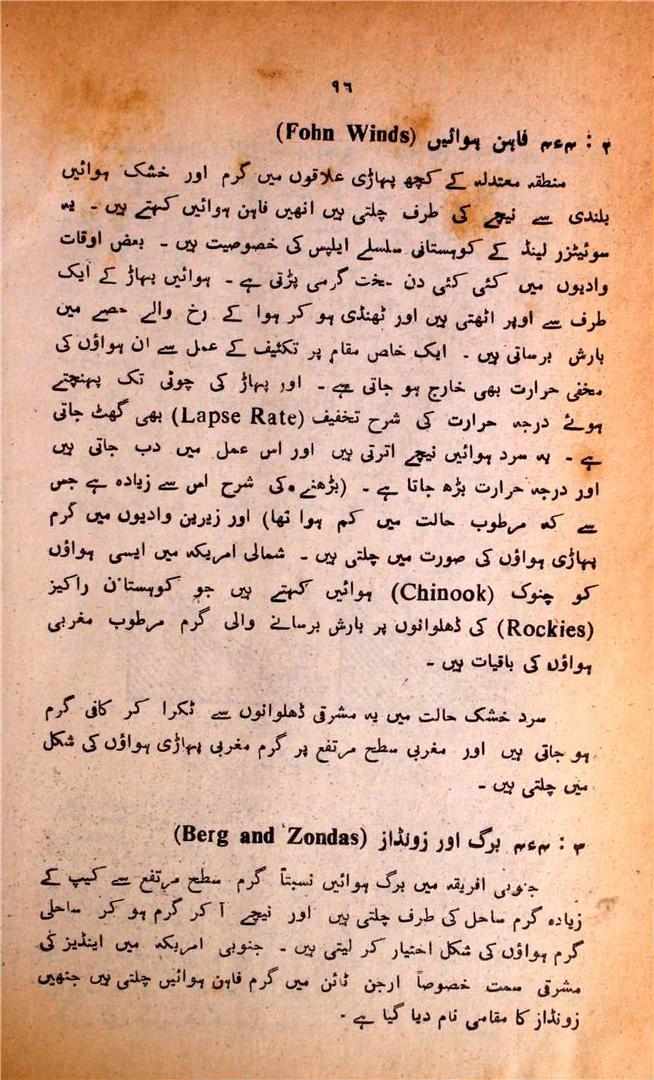 ۹٦
۲ : ۴ء۴ فاہن ہوائیں (Fohn Winds)
منطقہ معتدلہ کے کچھ پہاڑی علاقوں میں گرم اور خشک ہوائیں
بلندی سے نیچے کی طرف چلتی ہیں انھیں فاہن ہوائیں کہتے ہیں ۔ یہ
سوئیٹزر لینڈ کے کوہستانی سلسلے ایلپس کی خصوصیت ہیں ۔ بعض اوقات
وادیوں میں کئی کئی دن سخت گرمی پڑتی ہے ۔ ہوائیں پہاڑ کے ایک
طرف سے اوپر اٹھتی ہیں اور ٹھنڈی ہو کر ہوا کے رخ والے حصے میں
بارش برساتی ہیں ۔ ایک خاص مقام پر تکثیف کے عمل سے ان ہواؤں کی
مخفی حرارت بھی خارج ہو جاتی ہے ۔ اور پہاڑ کی چوٹی تک پہنچتے
ہوئے درجہ حرارت کی شرح تخفیف (Lapse Rate) بھی گھٹ جاتی
ہے ۔ یہ سرد ہوائیں نیچے اترتی ہیں اور اس عمل میں دب جاتی ہیں
اور درجہ حرارت بڑھ جاتا ہے ۔ (بڑھنے کی شرح اس سے زیادہ ہے جس
سے کہ مرطوب حالت میں کم ہوا تھا) اور زیریں وادیوں میں گرم
پہاڑی ہواؤں کی صورت میں چلتی ہیں ۔ شمالی امریکہ میں ایسی ہواؤں
کو چنوک (Chinook) ہوائیں کہتے ہیں جو کوہستان راکیز
(Rockies) کی ڈھلوانوں پر بارش برسانے والی گرم مرطوب مغربی
ہواؤں کی باقیات ہیں ۔
سرد خشک حالت میں یہ مشرقی ڈھلوانوں سے ٹکرا کر کافی گرم
ہو جاتی ہیں اور مغربی سطح مرتفع پر گرم مغربی پہاڑی ہواؤں کی شکل
میں چلتی ہیں ۔
۳ : ۴ء۴ برگ اور زونڈاز (Berg and Zondas)
جنوبی افریقہ میں برگ ہوائیں نسبتاً گرم سطح مرتفع سے کیپ کے
زیادہ گرم ساحل کی طرف چلتی ہیں اور نیچے آ کر گرم ہو کر ساحلی
گرم ہواؤں کی شکل اختیار کر لیتی ہیں ۔ جنوبی امریکہ میں اینڈیز کی
مشرقی سمت خصوصاً ارجن ٹائن میں گرم فاہن ہوائیں چلتی ہیں جنھیں
زونڈاز کا مقامی نام دیا گیا ہے ۔